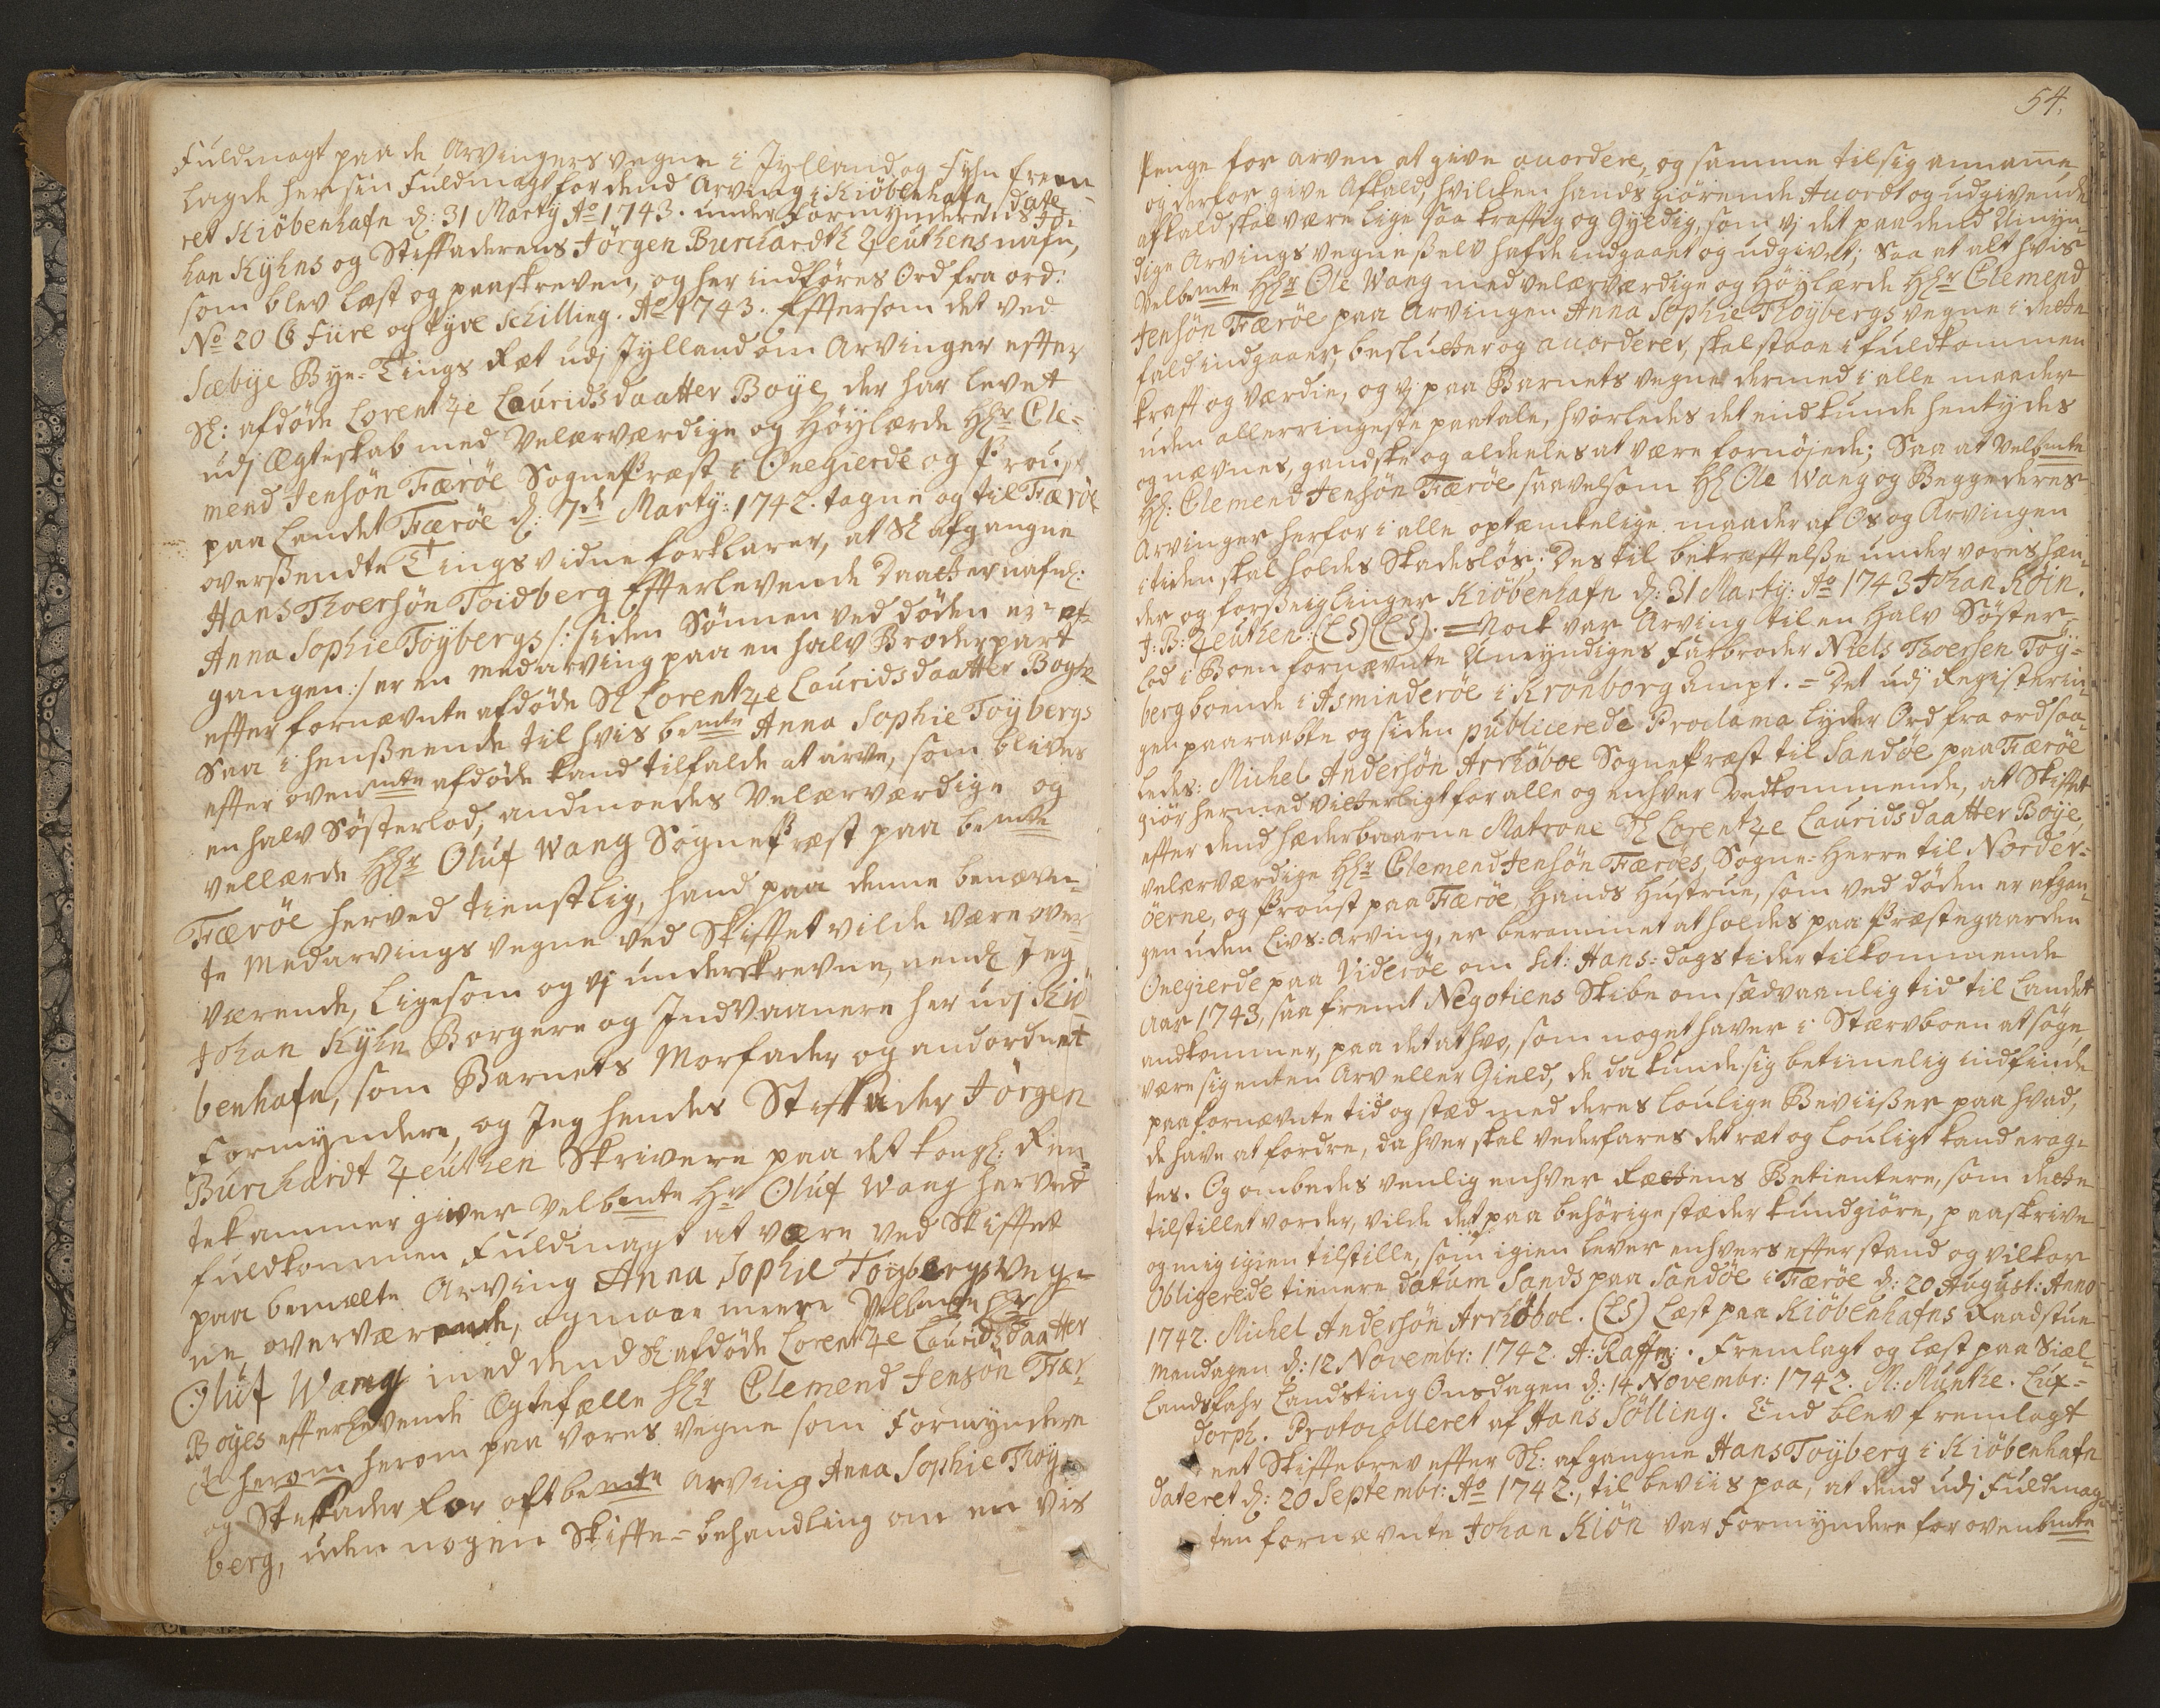 Fuldmagt paa de Arvingers vegne i Jylland og Fyhn frem-
lagde her sin Fuldmagt for dend Arving i Kiöbenhafn, date
ret Kiöbenhafn d: 31 Marty Ao 1743. under Formynderens Jo-
han Kÿhns og Stiffaderens Jörgen Burchardth Zeuthens nafn,
som blev læst og paaskreven, og her indföres Ord fra ord:
No 20 ß Fiire og tÿve Schilling. Ao 1743. Efftersom det ved
Sæbÿe Bÿe-Tings Ræt udj Jÿlland om Arvinger effter
Sl: afdöde Lorentze Lauridsdaatter Boÿe, der har levet
udj Ægteskab med Velærværdige og Höÿlærde Hr Cle-
mend Jensön Færöe Sognepræst i Qnegierde og Proust
paa Landet Færöe d: 7de Martÿ: 1742. tagne og til Færöe
overssendte Tingsvidne forklarer, at Sl afgangne
Hans Thoersön Toidberg Effterlevende Daatter nafnl:
Anna Sophie Toÿbergs /: siden Sönnen ved döden er af-
gangen :/ er en medarving paa en halv Broderpart
effter fornævnte afdöde Sl Lorentze Lauridsdaatter Boyse
Saa i henseende til hvis bemte Anna Sophie Toÿbergs
effter ovenmte afdöde kand tilfalde at arve, som bliver
en halv Sösterlod, andmodes Velærværdige og
vellærde Hr Oluf Wang Sognepræst paa bemte
Færöe herved tienstlig, hand paa denne benævn-
te Medarvings vegne ved Skifftet vilde være over-
værende, Ligesom og vj underskrevne, nendl Jeg
Johan Kÿhn Borgere og Indvaanere her udj Kiö-
benhafn, som Barnets Morfader og andordnet
Formyndere, og Jeg hendes Stiffader Jörgen
Burchardt Zeuthen Skrivere paa det kongl: Ren-
tekammer giver Velbmte Hr Oluf Wang herved
fuldkommen Fuldmagt at være ved Skifftet
paa bemælte Arving Anna Sophie Toÿbergs veg-
ne overværende, og maae meere Velbmte Hr
Oluf Wang med dend Sl: afdöde Lorentze Lauridsdaatter
Boÿes effterlevende Ægtefælle Hr Clemend Jensön Fær-
öe herom herom paa vores vegne som Formyndere
og Stiffader for oftbemte arving Anna Sophie Thoÿ-
berg, uden nogen Skiffte-behandling om en vis
54.
Penge for arven at give avordere, og samme til sig annamme
og derfor give Afkald, hvilcken hands giörende Avordt og udgivende
afkald skal være lige saa krafftig og Gyldig, som vj det paa dend Umÿn-
dige Arvings vegne sselv hafde indgaaet og udgivet; Saa at alt hvis
Velbemte Hr Ole Wang med velærværdige og Höÿlærde Hr Clemend
Jensön Færöe paa Arvingen Anna Sophie Thoÿbergs vegne i dette
fald indgaaer, beslutter og avorderer, skal staae i fuldkommen
krafft og værdie, og vj paa Barnets vegne dermed i alle maader
uden allerringeste paatale, hvorledes det end kunde hentÿdes
og nævnes, gandske og aldeeles at være fornöÿede; Saa at Velbmte
Hl: Clemend Jensön Færöe saavelsom Hl Ole Wang og Beggederes
Arvinger herfor i alle optænkelige maader af Os og Arvingen
i tiden skal holdes Skadeslös. Des til bekræfftelsse under vores hæn-
der og forseiglinger Kiöbenhafn d: 31 Marty: Ao 1743 Johan Köin.
J: B: Zeuthen. (LS) (LS). = Nock var Arving til en halv Söster-
lod i Boen fornævnte Umyndiges Farbroder Niels Thoersen Toÿ-
berg boende i Asminderöe i Kronborg Ampt. = Det udj Registerin-
gen paaraabte og siden publicerede Proclama lÿder Ord fra ord saa-
ledes: Michel Andersön Arrhöboe Sognepræst til Sandöe paa Færöe
giör hermed vitterligt for alle og enhver Vedkommende, at Skifftet
effter dend hæderbaarne Matrone Sl Lorentze Lauridsdaatter Boÿe,
velærværdige Hr Clemend Jensön Færöes, Sogne-Herre til Norder-
öerne, og Proust paa Færöe, Hands Hustrue, som ved döden er afgan-
gen uden Livs-Arving, er berammet at holdes paa Præstegaarden
Qnegierde paa Videröe om Sct: Hans-dags tider tilkommende
Aar 1743, saafremt Negotiens Skibe om sædvaanlig tid til Landet
andkommer, paa det at hvo, som noget haver i Stærvboen at söge,
være sig enten Arv eller Gield, de da kunde sig betimelig indfinde
paa fornævnte tid og stæd med deres loulige Beviisser paa hvad,
de have at fordre, da hver skal vederfares det ræt og louligt kand erag-
tes. Og ombedes venlig enhver Rættens Betientere, som dette
tilstillet vorder, vilde det paa behörige stæder kundgiöre, paaskrive
og mig igien tilstille, som igien lever enhvers effter stand og vilkor
Obligerede tienere datum Sands paa Sandöe i Færöe d: 20 August: Anno
1742. Michel Andersön Arrhöboe. (LS) Læst paa Kiöbenhafns Raadstue
Mandagen d: 12 Novembr: 1742. A: Raffn. Fremlagt og læst paa Siæl-
landsfahr Landsting Onsdagen d: 14 Novembr: 1742. M: Munthe. Lux-
dorph. Protocolleret af Hans Sölling. End blev fremlagt
eet Skifftebrev effter Sl: afgangne Hans Toÿberg i Kiöbenhafn
dateret d: 20 Septembr: Ao 1742., til beviis paa, at dend udj Fuldmag-
ten fornævnte Johan Kiön var Formyndere for ovenbmte